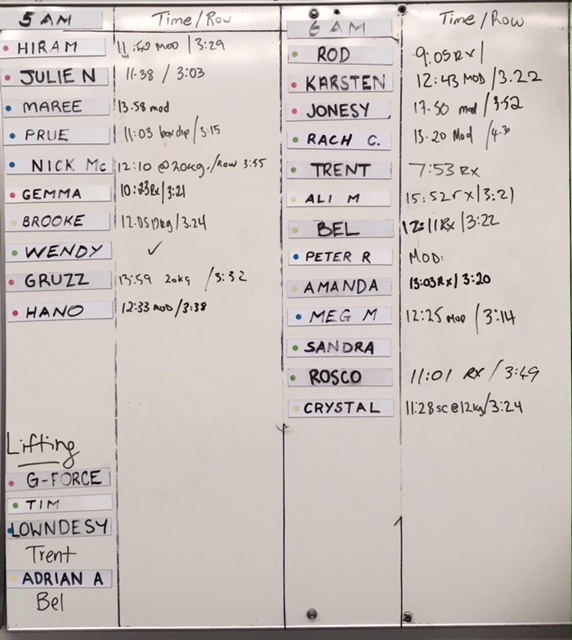 5 AM Time/Row
HIRAM 11:50 MOD /3:29
JULIE N 11.38 / 3:03
MAREE 13.58 mod
PRUE 11:03 /3:15
NICK Mc 12:10 @20kg./Row 3:55
GEMMA /3:21
BROOKE /3.24
WENDY ✓
GRUZZ 13:59 20kg /3:32
HANO 12:33 MOD/3:38
Lifting
G-FORCE
TIM
LOWNDESY
Trent
ADRIAN A
Bel
6 AM Time/Row
ROD 9:05 RX/
KARSTEN 12:43 MOD /3.22
JONESY 17.50 mod /3:52
RACH C. 13.20 Mod
TRENT 7:53 RX
ALI M 15:52rx/3:21
BEL 12:11Rx /3:22
PETER R MOD:
AMANDA 13:03Rx/3:20
MEG M 12:25 MOD /3:14
SANDRA
ROSCO 11:01 RX /3:49
CRYSTAL 11:28sc@12kg/3:24